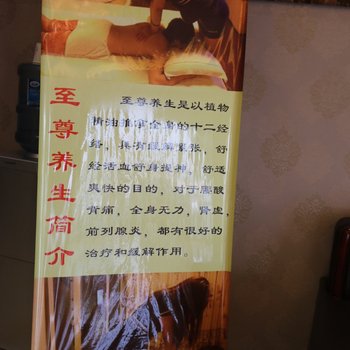 至尊养生简介
至尊养生是以植物
精油推拿全身的十二经
络，具有缓解紧张，舒
经活血舒身提神，舒适
爽快的目的，对于腰酸
背痛，全身无力，肾虚，
前列腺炎，都有很好的
治疗和缓解作用。